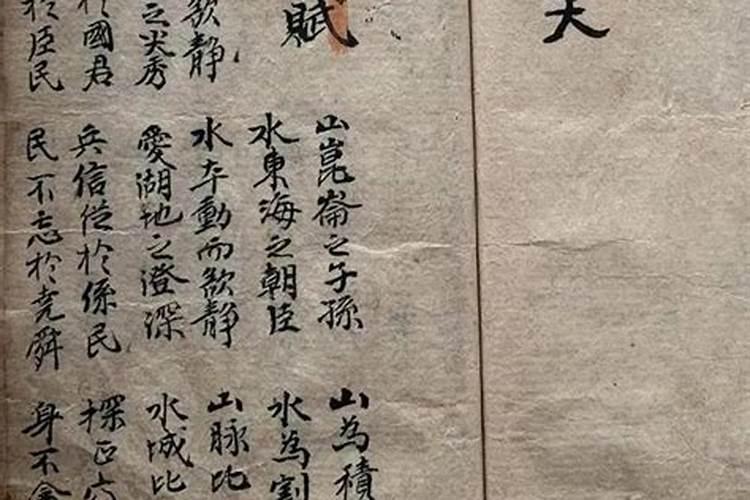 賦
山崑崙之子孫 山為積
水東海之朝臣 水為割
欲靜 水夲動而欲靜 山脉比
之尖秀 愛湖地之澄深 水城比
國君 兵信從於係民 探正
於臣民 民不忘於堯舜 身不